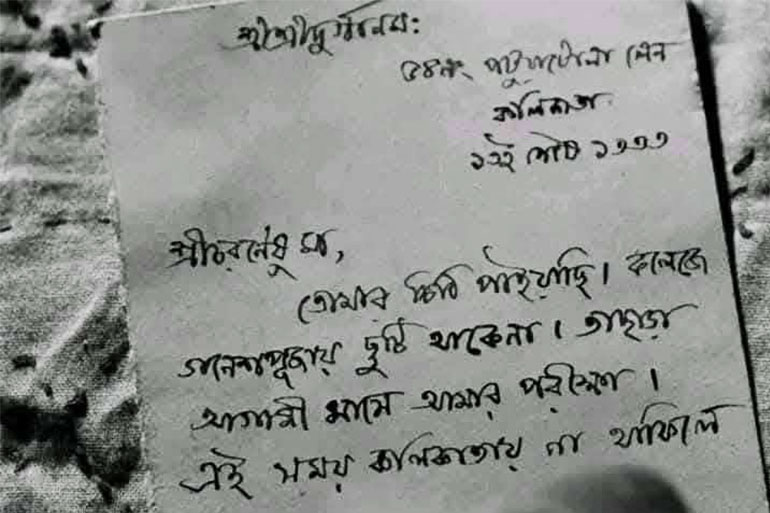 ৫৪নং পটুয়াটোলা লেন
কলিকাতা
পৌষ ১৩৩৩
শ্রীচরণেষু মা,
তোমার চিঠি পাইয়াছি। কলেজে
গনেশপূজায় ছুটি থাকেনা। তাছাড়া
আগামী মাসে আমার পরীক্ষা।
এই সময় কলিকাতায় না থাকিলে